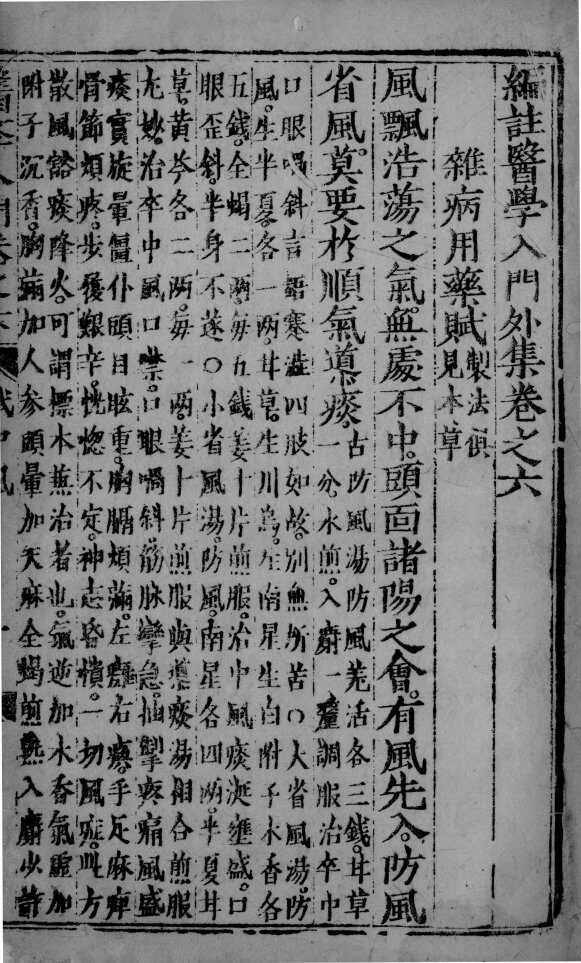 編註醫學入門外集卷之六
雜病用藥賦製法俱
見本草
風飄浩蕩之氣無處不中頭面諸陽之會有風先入防風
省風莫要於順氣導痰古防風湯防風羌活各三錢甘草
一分水煎入麝一釐調服治卒中
口眼喎斜言語蹇澁四肢如故別無所苦○大省風湯防
風生半夏各一兩甘草生川烏生南星生白附子木香各
五錢全蝎二兩每五錢姜十片煎服治中風痰涎壅盛口
眼歪斜半身不遂○小省風湯防風南星各四兩半夏甘
草黃芩各二兩每一兩姜十片煎服與導痰湯相合煎服
尤妙治卒中風口禁口眼喎斜筋脉攣急抽掣疼痛風盛
痰實旋暈僵仆頭目眩重胸膈煩滿左癱右瘓手足麻痺
骨節煩疼步履艱辛恍惚不定神志昏憒一切風症此方
散風豁痰降火可謂標本兼治者也氣逆加木香氣虛加
附子沉香胸滿加人參頭暈加天麻全蝎煎熟入麝少許